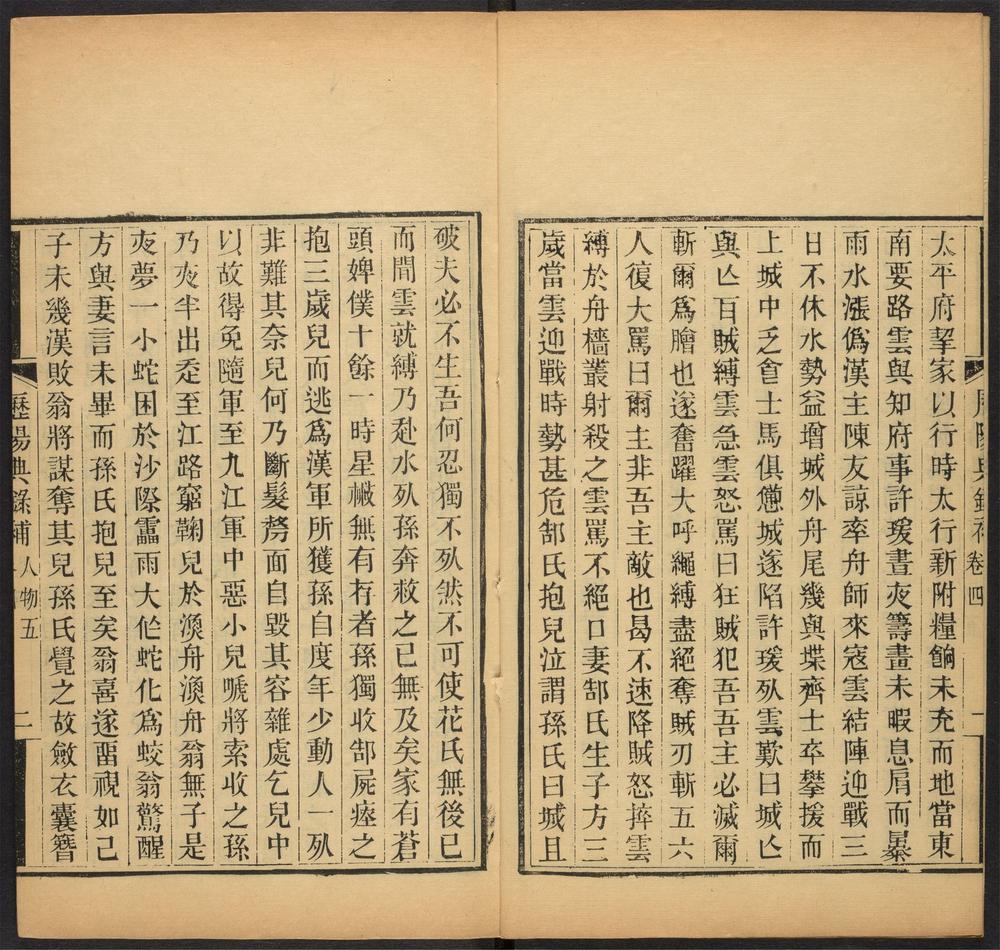 太平府挈家以行時太行新附糧餉未充而地當東
南要路雲與知府事許瑗晝夾籌畫未暇息肩而暴
雨水漲僞漢主陳友諒率舟師來寇雲結陣迎戰三
日不休水勢益增城外舟尾幾與堞齊士卒攀援而
上城中乏㑹士馬俱憊城遂陷許瑗歾雲歎曰城亾
與亾百賊縛雲急雲怒罵曰狂賊犯吾吾主必滅爾
斬爾爲膾也遂奮躍大呼繩縛盡絕奪賊刃斬五六
人復大罵曰爾主非吾主敵也曷不速降賊怒捽雲
縛於舟檣叢射殺之雲罵不絕口妻郜氏生子方三
歲當雲迎戰時勢甚危郜氏抱兒泣謂孫氏曰城且
卷四
一
破夫必不生吾何忍獨不歾然不可使花氏無後已
而間雲就縛乃赴水歾孫奔救之已無及矣家有蒼
頭婢僕十餘一時星㪚無有存者孫獨收郜屍瘞之
抱三歲兒而逃爲漢軍所獲孫自度年少動人一歾
非難其奈兒何乃斷髮剺面自毀其容雜處乞兒中
以故得免隨軍至九江軍中惡小兒嗁將索收之孫
乃夾半出走至江路窮鞠兒於漁舟漁舟翁無子是
夾夢一小蛇困於沙際靁雨大作蛇化爲蛟翁驚醒
方與妻言未畢而孫氏抱兒至矣翁喜遂畱視如己
子未幾漢敗翁將謀奪其兒孫氏覺之故斂衣囊簪
歷陽典錄補
人物五
二